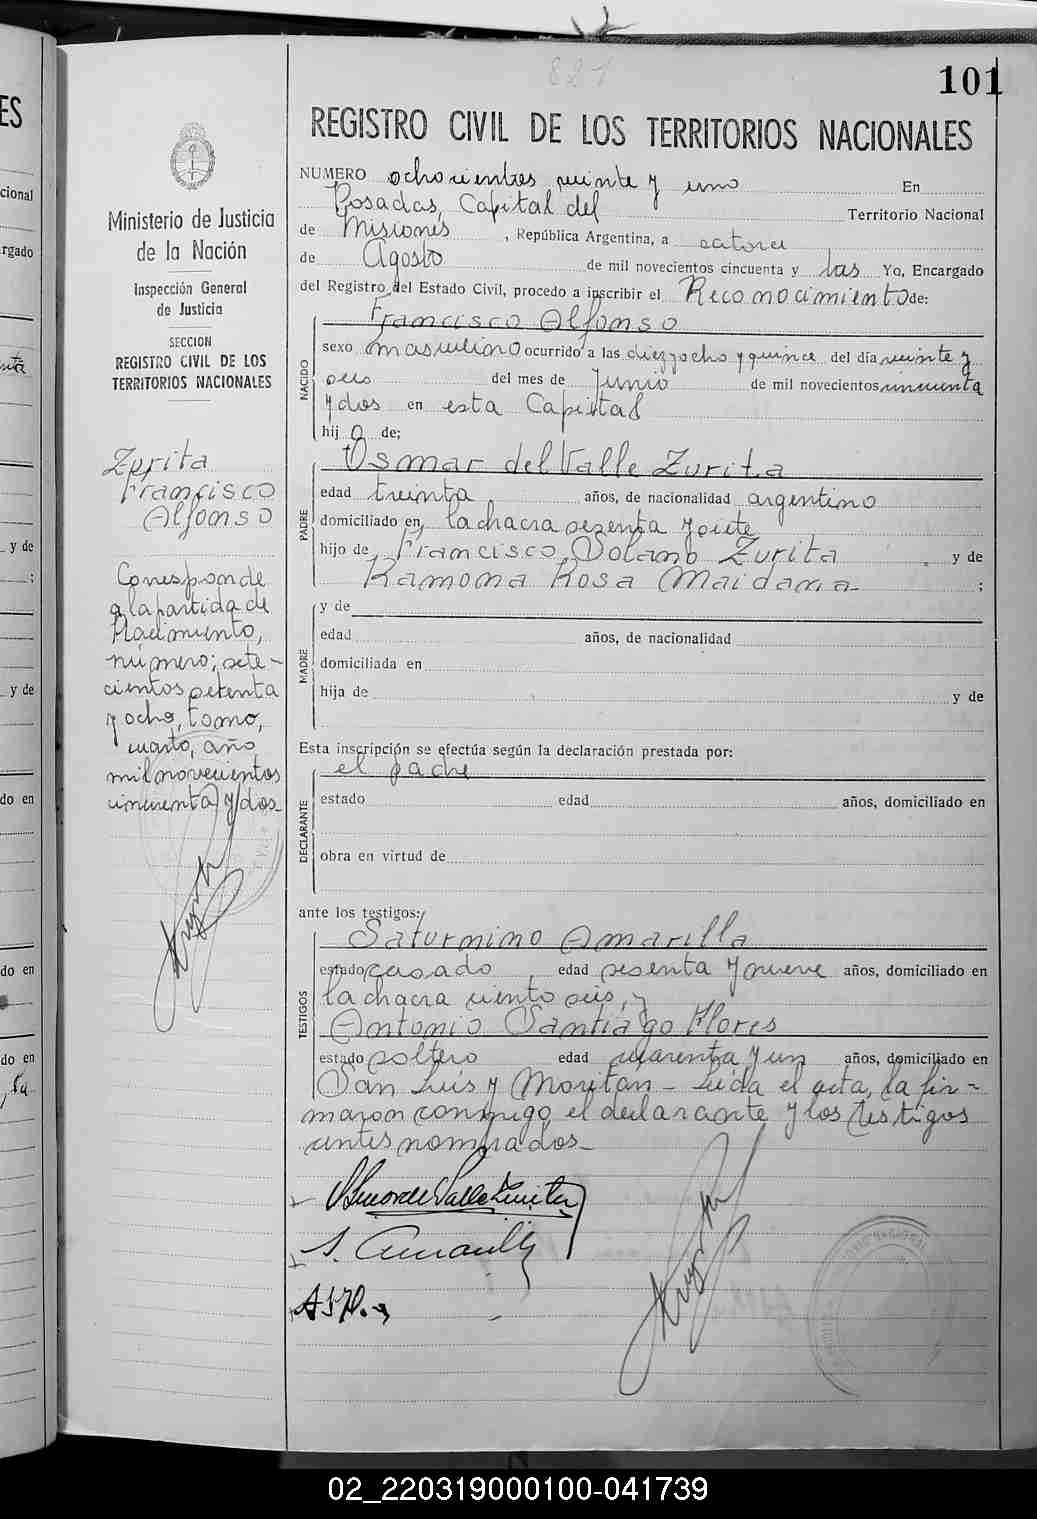 821
101
REGISTRO CIVIL DE LOS TERRITORIOS NACIONALES
NUMERO ochocientos veinte y uno En
Posadas, Capital del Territorio Nacional
de Misiones, República Argentina, a catorce
de Agosto de mil novecientos cincuenta y dos Yo, Encargado
del Registro del Estado Civil, procedo a inscribir el Reconocimiento de:
NACIDO
Francisco Alfonso
sexo masculino ocurrido a las diez y ocho y quince del día veinte y
seis del mes de Junio de mil novecientos cincuenta
y dos en esta Capital
hij o de;
PADRE
Osmar del Valle Zurita
edad treinta años, de nacionalidad argentino
domiciliado en la chacra sesenta y siete
hijo de Francisco Solano Zurita y de
Ramona Rosa Maidana ;
MADRE
y de
edad años, de nacionalidad
domiciliada en
hija de y de
Esta inscripción se efectúa según la declaración prestada por:
el padre
DECLARANTE
estado edad años, domiciliado en
obra en virtud de
ante los testigos:
TESTIGOS
Saturnino Amarilla
estado casado, edad sesenta y nueve años, domiciliado en
la chacra ciento seis, y
Antonio Santiago Flores
estado soltero edad cuarenta y un años, domiciliado en
San Luis y Moritan - Leída el acta, la fir-
maron conmigo, el declarante y los testigos
antes nombrados.-
Osmar del Valle Zurita
S. Amarilla
Ministerio de Justicia
de la Nación
Inspección General
de Justicia
SECCION
REGISTRO CIVIL DE LOS
TERRITORIOS NACIONALES
Zurita
Francisco
Alfonso
Corresponde
a la partida de
Nacimiento,
número; sete-
cientos setenta
y ocho, tomo,
cuarto, año,
mil novecientos
cincuenta y dos-
ES
cional
rgado
y de
;
y de
do en
do en
do en
02_220319000100-041739